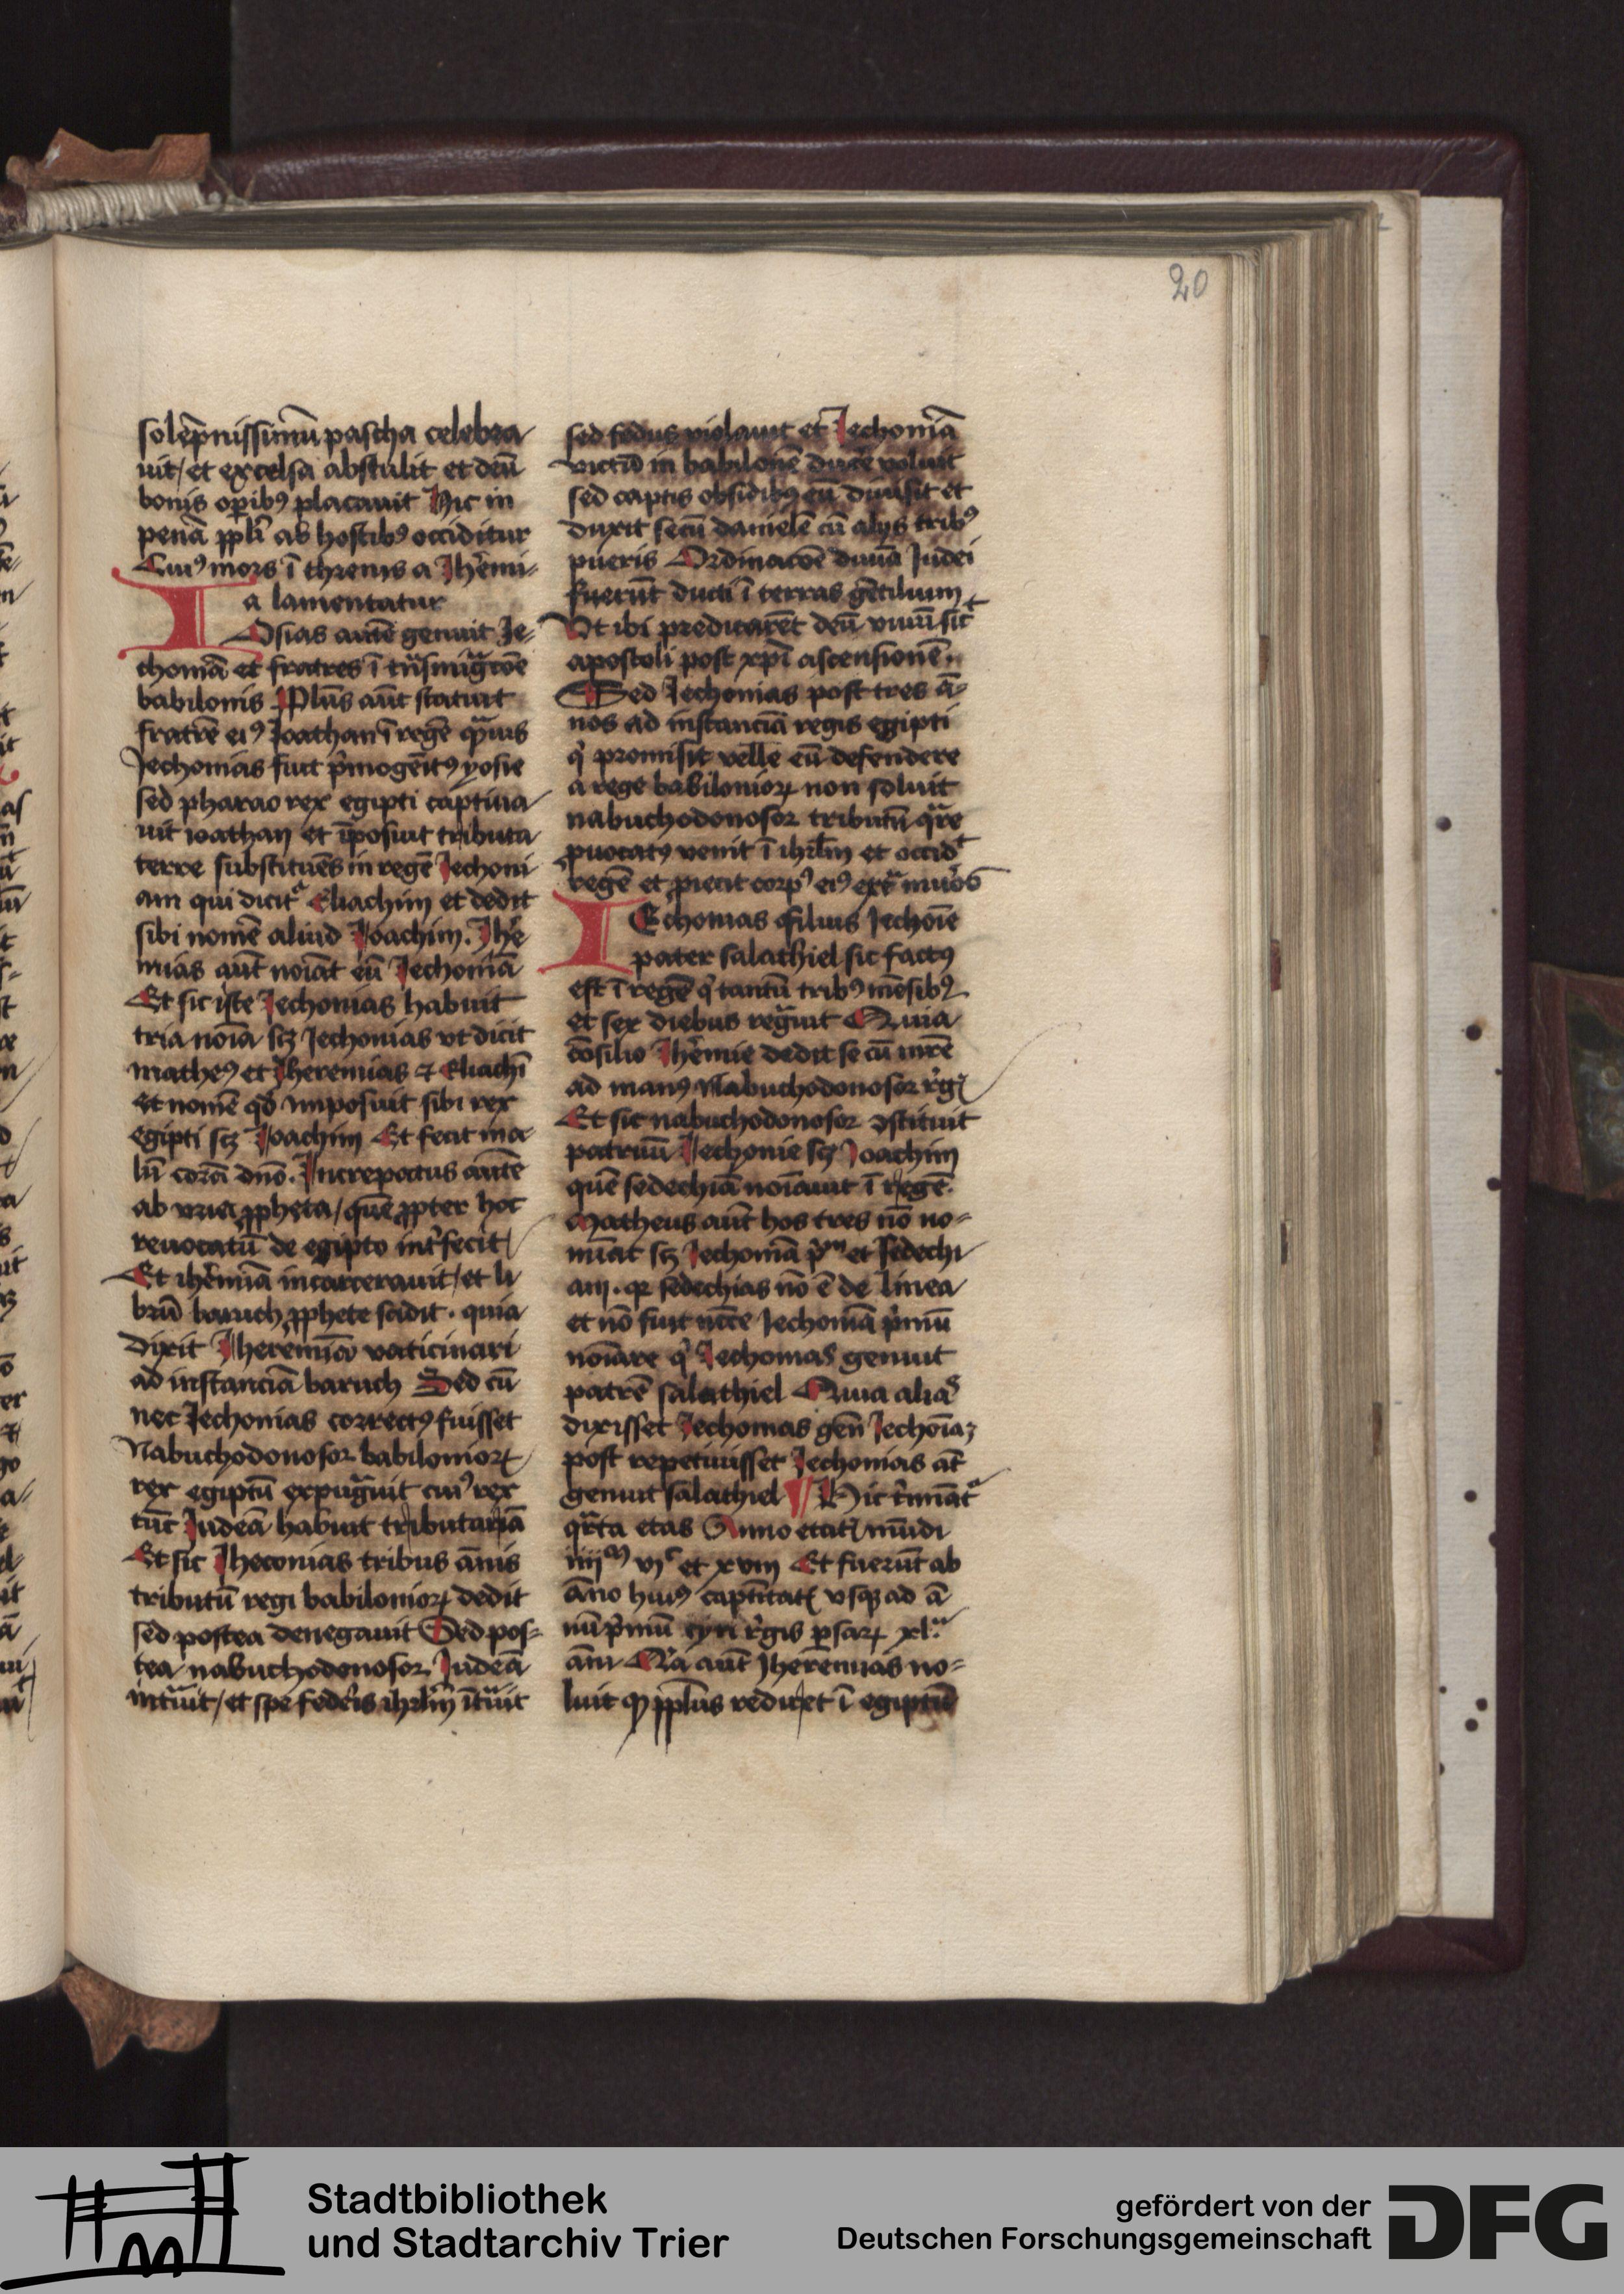 20
solēpnissimū pascha celebra
uit / et excelsa abstulit et deū
bonis opibꝰ placauit Hic in
penā ppli ab hostibꝰ occiditur
Cuiꝰ mors ī threnis a Jhemi-
a lamentatur
IOsias autē genuit Je-
choniā et fratres ī trāsmigrcōe
babilonis Plūs aūt statuit
fratrē eiꝰ Joathan ī regē qͣuis
Jechonias fuit pͥmogēitꝰ yosie
sed pharao rex egipti captiua
uit ioathan et īposuit tributa
terre substituēs in regē Jechoni
am qui dicitͬ Eliachim et dedit
sibi nomē aliud Joachim. Jhe
mias aūt noīat eū Jechoniā
Et sic iste Jechonias habuit
tria noīa scꝫ Jechonias vt dicit
matheꝰ et Jheremias ⁊ Eliachī
Et nomē qd imposuit sibi rex
egipti scꝫ Joachim Et fecit ma
lū corā dno. Increpatus autē
ab vria ꝓpheta / quē ꝓpter hoc
reuocatū de egipto intͬfecit
Et ihemiā incarcerauit / et li
brū baruch ꝓphete scidit. quia
dixit Jheremiā vaticinari
ad instanciā baruch Sed cū
nec Jechonias correctꝰ fuisset
Nabuchodonosor babilonioꝝ
rex egiptū expugͣuit cuiꝰ rex
tūc Judeā habuit tributariā
Et sic Jheconias tribus ānis
tributū regi babilonioꝝ dedit
sed postea denegauit Sed pos-
tea nabuchodonosor Judeā
intͣuit / et spe federis ihrlm ītͣuit
sed fedus violauit et Jechoniā
victū in babilonē ducē voluit
sed captis obsidibꝰ eū dimisit et
duxit secū danielē cū alijs tribꝰ
pueris Ordinacōe diuīa Judei
fuerūt ducti ī terras gētilium
Vt ibi predicarēt deū viuū sic
apostoli post xpī ascensionē
Sed Jechonias post tres ā-
nos ad instanciā regis egipti
qͥ promisit velle eū defendere
a rege babilonioꝝ non soluit
nabuchodonosor tributū qͣre
ꝓuocatꝰ venit ī ihrlm et occidͭ
regē et ꝓiecit corpꝰ eiꝰ extͣ muros
IEchonias filius Jechoīe
pater salathiel sic factꝰ
est ī regē qͥ tantū tribꝰ mēsibꝰ
et sex diebus regͣuit Quia
cōsilio Jhemie dedit se cū mrē
ad manꝰ Nabuchodonosor rͤgꝭ
Et sic nabuchodonosor ꝯstituit
patruū Jechonie scꝫ Joachim
quē sedechiā noīauit ī regē.
Matheus aūt hos tres nō no-
mīat scꝫ Jechoniā pͥmū et sedechi
am. qꝛ sedechias nō ē de linea
et nō fuit ncc̄e Jechoniā pͥmū
noīare qͥ Jechonias genuit
patrē salathiel Quia alias
dixisset Jechonias gen̄ Jechoīaꝫ
post repetiuisset Jechonias at̄
genuit salathiel ¶ Hic tͤmīatͬ
qͣrta etas Anno etatꝭ mūdi
iiijᵐ vjᶜ et xviij Et fuerūt ab
āno huiꝰ captītatꝭ vsqꝫ ad ā
nū pͥmū cyri rͤgis psaꝝ xl
āni Qͣ aūt Jheremias no-
luit qͫ ppl̄us rediret ī egiptū
Stadtbibliothek
und Stadtarchiv Trier
gefördert von der
Deutschen Forschungsgemeinschaft
DFG